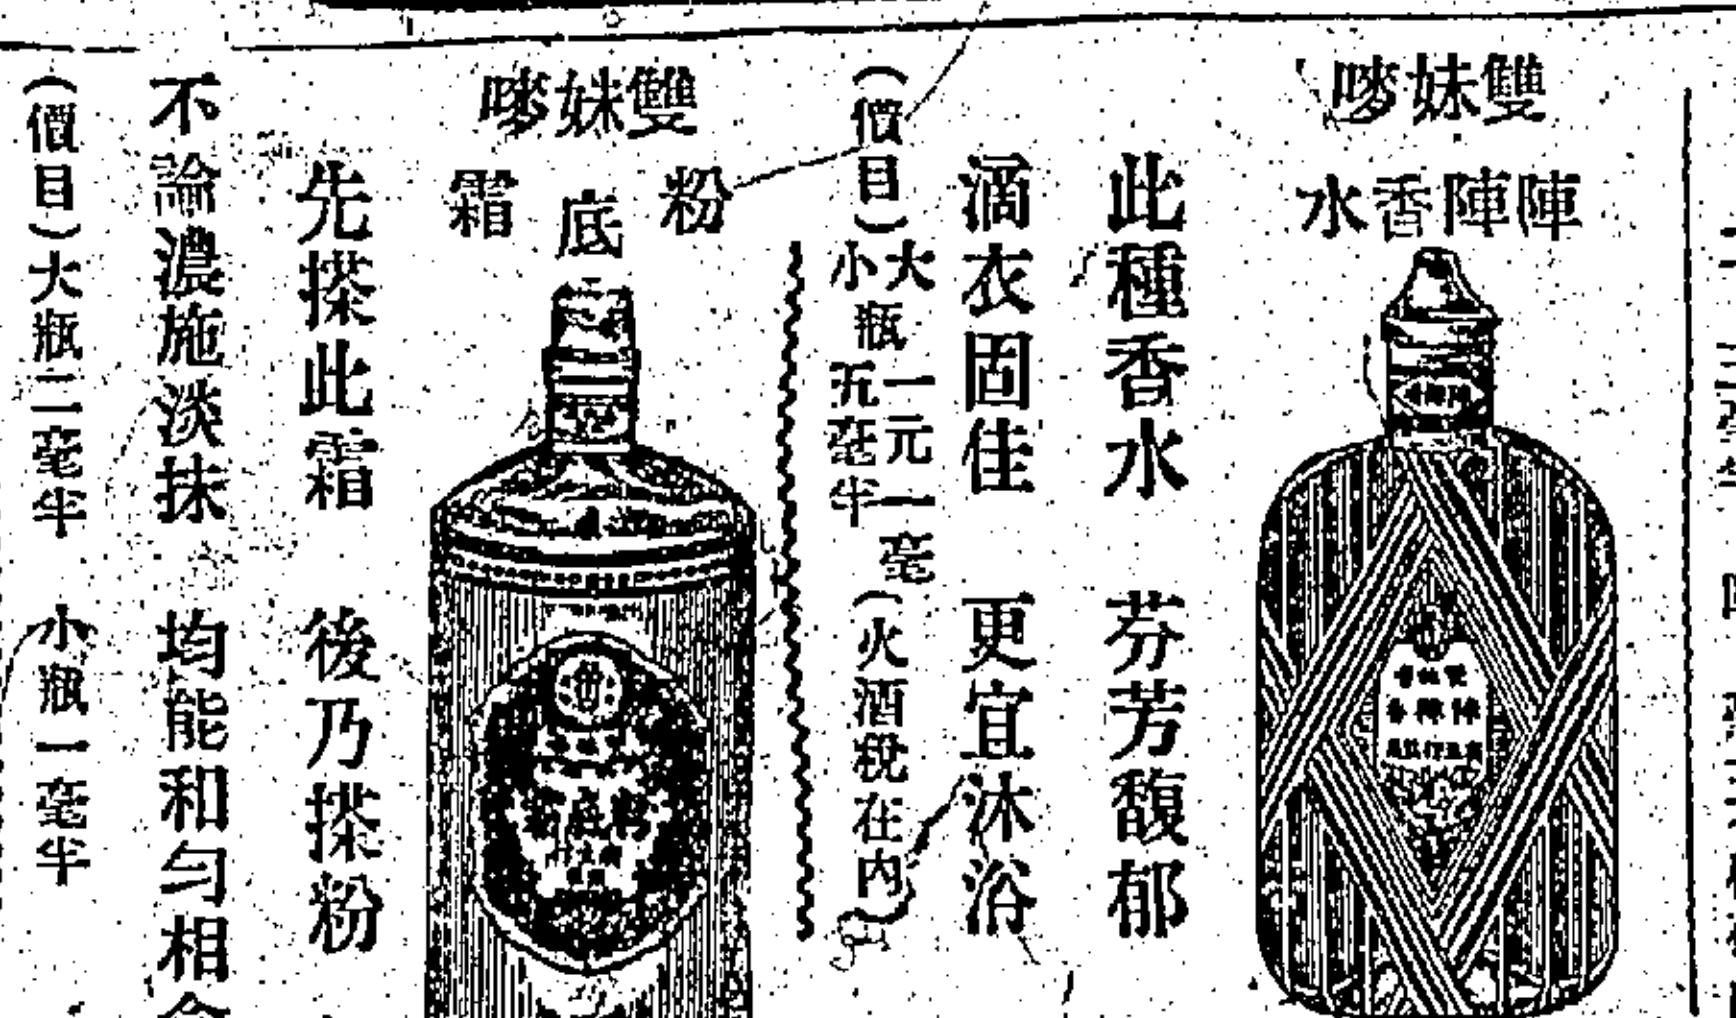 雙妹嘜
陣陣香水
此種香水 芬芳馥郁
滴衣固佳 更宜沐浴
(價目)大瓶一元一毫 小瓶五毫半 (火酒稅在內)
雙妹嘜
粉底霜
先搽此霜 後乃搽粉
不論濃施淡抹 均能和勻相
(價目)大瓶二毫半 小瓶一毫半